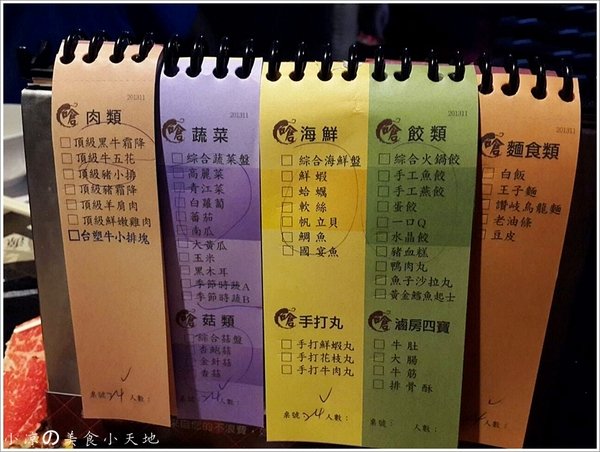 201311
嗆 肉類
□ 頂級黑牛霜降
□ 頂級牛五花
□ 頂級豬小排
□ 頂級豬霜降
□ 頂級羊肩肉
□ 頂級鮮嫩雞肉
□ 台塑牛小排塊
桌號: 24 人數:
201311
嗆 蔬菜
□ 綜合蔬菜盤
□ 高麗菜
□ 青江菜
□ 白蘿蔔
□ 蕃茄
□ 南瓜
□ 大黃瓜
□ 玉米
□ 黑木耳
□ 季節時蔬A
□ 季節時蔬B
嗆 菇類
□ 綜合菇盤
□ 杏鮑菇
□ 金針菇
□ 香菇
桌號: 24 人數:
201311
嗆 海鮮
□ 綜合海鮮盤
□ 鮮蝦
□ 蛤蠣
□ 軟絲
□ 帆立貝
□ 鯛魚
□ 國宴魚
嗆 手打丸
□ 手打鮮蝦丸
□ 手打花枝丸
□ 手打牛肉丸
桌號: 24 人數:
201311
嗆 餃類
□ 綜合火鍋餃
□ 手工魚餃
□ 手工燕餃
□ 蛋餃
□ 一口Q
□ 水晶餃
□ 豬血糕
□ 鴨肉丸
□ 魚子沙拉丸
□ 黃金鱈魚起士
嗆 滷房四寶
□ 牛肚
□ 大腸
□ 牛筋
□ 排骨酥
桌號: 24 人數:
201311
嗆 麵食類
□ 白飯
□ 王子麵
□ 讚岐烏龍麵
□ 老油條
□ 豆皮
桌號: 24 人數:
小凉の美食小天地